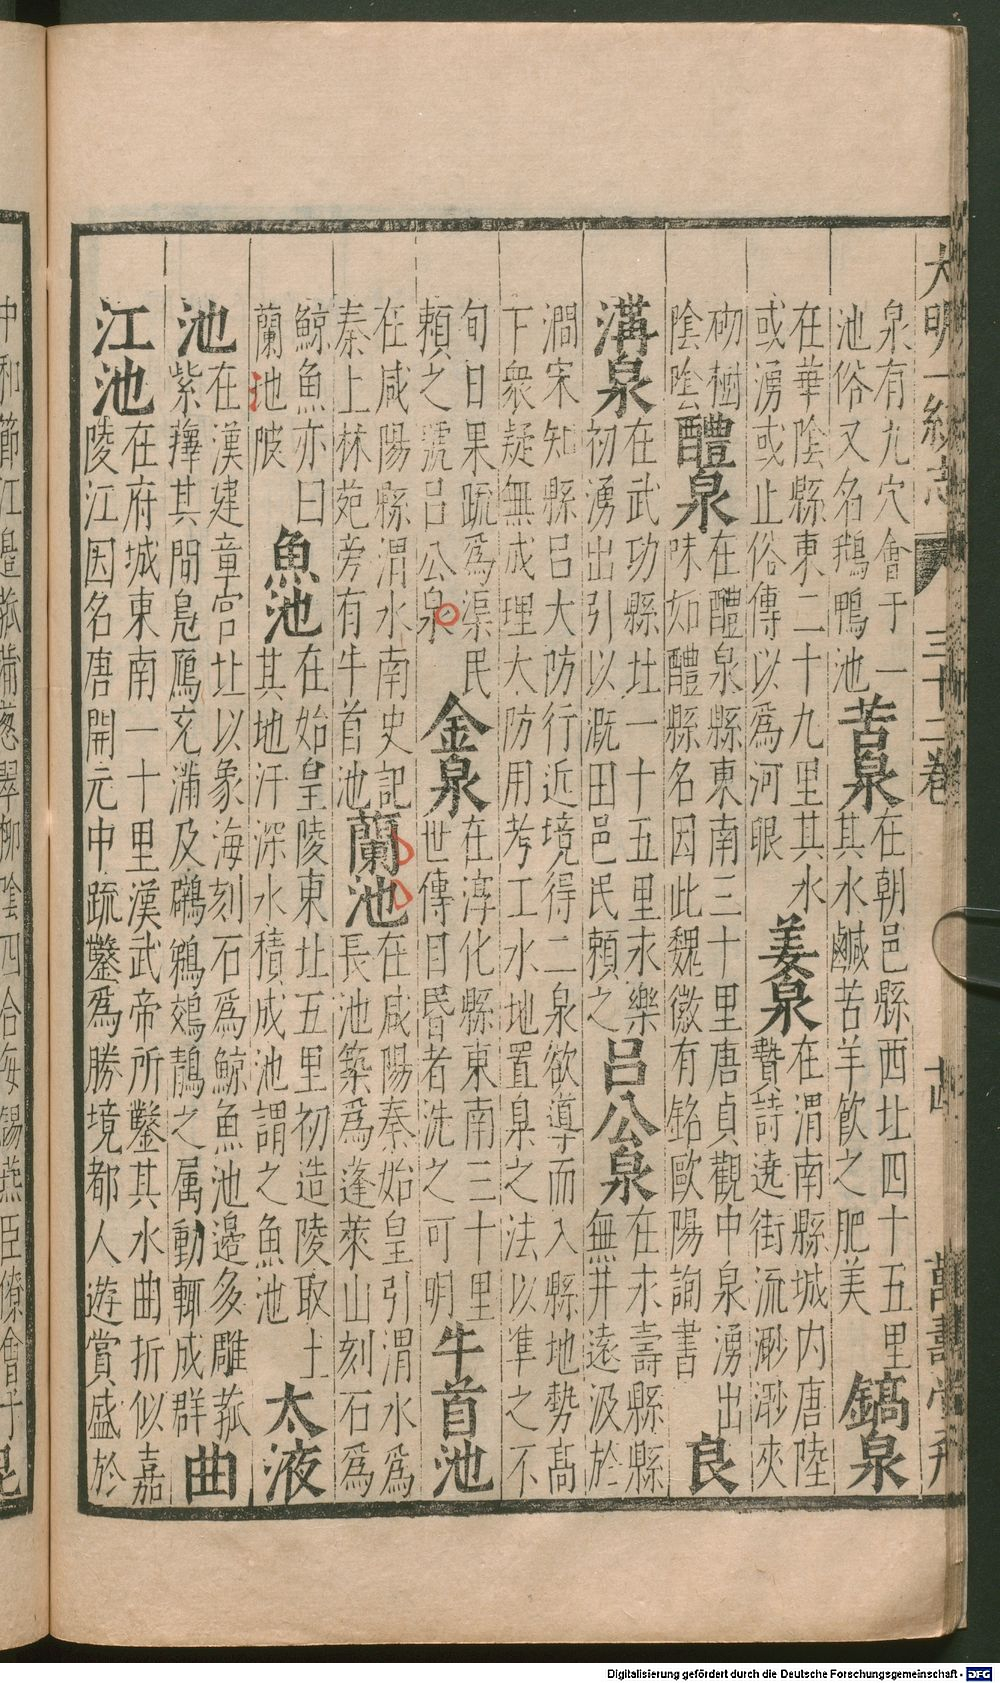 大明一統志 三十二卷 萬壽堂刊
泉有九穴會于一
池俗又名鵝鴨池
苦泉
在朝邑縣西北四十五里
其水鹹苦羊飲之肥美
鎬泉
在華陰縣東二十九里其水
或湧或止俗傳以爲河眼
姜泉
在渭南縣城内唐陸
贄詩遶街流㴾㴾夾
砌樹
陰陰
醴泉
在醴泉縣東南三十里唐貞觀中泉湧出
味如醴縣名因此魏徵有銘歐陽詢書
良
溝泉
在武功縣北一十五里永樂
初湧出引以溉田邑民賴之
呂公泉
在永壽縣縣
無井遠汲於
澗宋知縣呂大防行近境得二泉欲導而入縣地勢高
下衆疑無成理大防用考工水地置臬之法以準之不
旬日果疏爲渠民
賴之號呂公泉
金泉
在淳化縣東南三十里
世傳目昬者洗之可明
牛首池
在咸陽縣渭水南史記
秦上林苑旁有牛首池
蘭池
在咸陽秦始皇引渭水爲
長池築爲蓬萊山刻石爲
鯨魚亦曰
蘭池陂
魚池
在始皇陵東北五里初造陵取土
其地汙深水積成池謂之魚池
太液
池
在漢建章宫北以象海刻石爲鯨魚池邊多雕菰
紫籜其間鳬鴈充滿及鷿鵜鵁鶄之属動輒成群
曲
江池
在府城東南一十里漢武帝所鑿其水曲折似嘉
陵江因名唐開元中疏鑿爲勝境都人遊賞盛於
中和節江邊菰蒲葱翠柳陰四合每錫燕臣僚會于
Digitalisierung gefördert durch die Deutsche Forschungsgemeinschaft - DFG